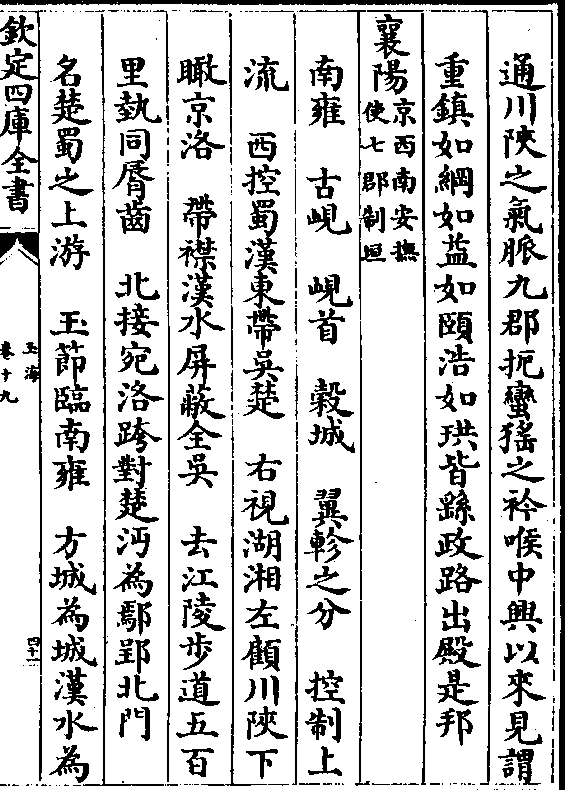 通川陜之氣脈九郡扼蠻猺之衿喉中興以來見謂
重鎮如綱如盐如頤浩如珙皆繇政路出殿是邦
襄陽京西南安撫使七郡制囬
南雍　古峴　峴首　穀城　翼軫之分　控制上
流　西控蜀漢東帶吳楚　右視湖湘左顧川陜下
瞰京洛　帶襟漢水屏蔽全吳　去江陵步道五百
里埶同脣齒　北接宛洛跨對楚沔為鄢郢北門
名楚蜀之上游　玉節臨南雍　方城為城漢水為
欽定四庫全書
玉海
卷十九
四十一